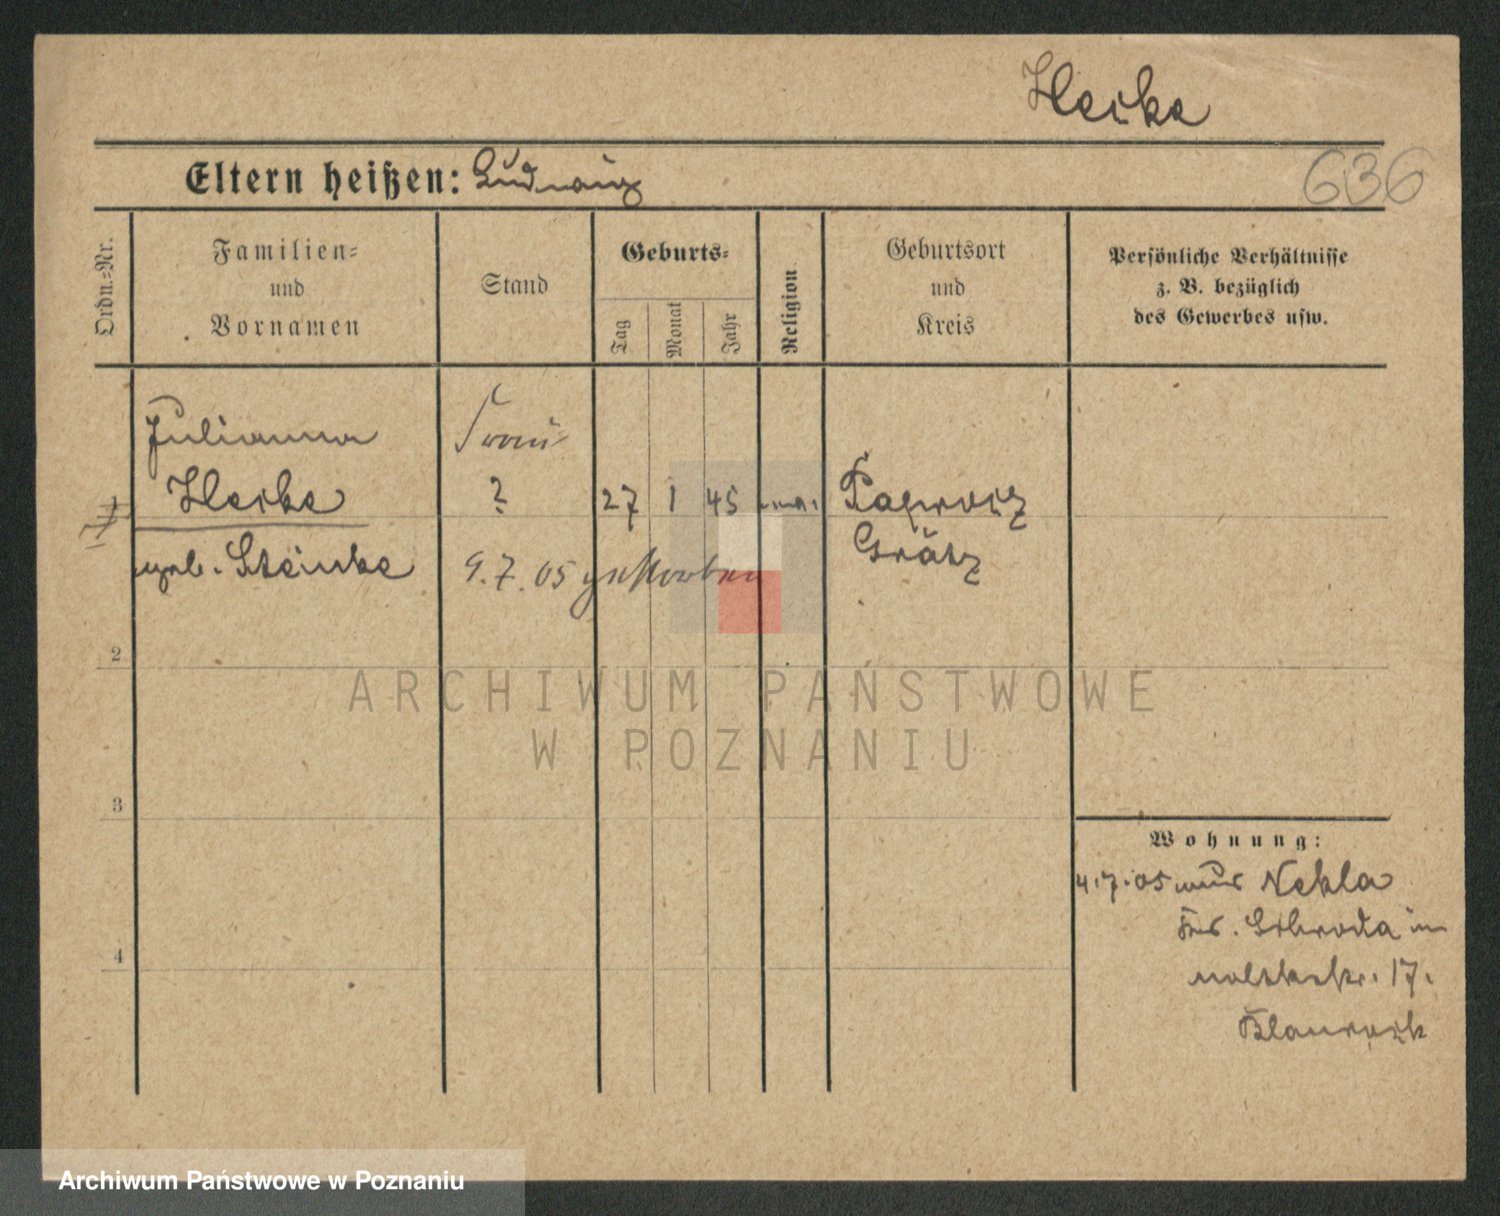 Heike
Eltern heißen: Ludwig
636
Ordn.=Nr.
Familien=
und
Vornamen
Stand
Geburts=
Tag
Monat
Jahr
Religion
Geburtsort
und
Kreis
Persönliche Verhältnisse
z. B. bezüglich
des Gewerbes usw.
Julianna
Frau
Heike
?
27 1 45
geb. Steinke
9.7.05 gestorben
Grätz
2
3
4
Wohnung:
4.7.05 aus Nekla
Krs. Schroda in
17.
ARCHIWUM PAŃSTWOWE
W POZNANIU
Archiwum Państwowe w Poznaniu